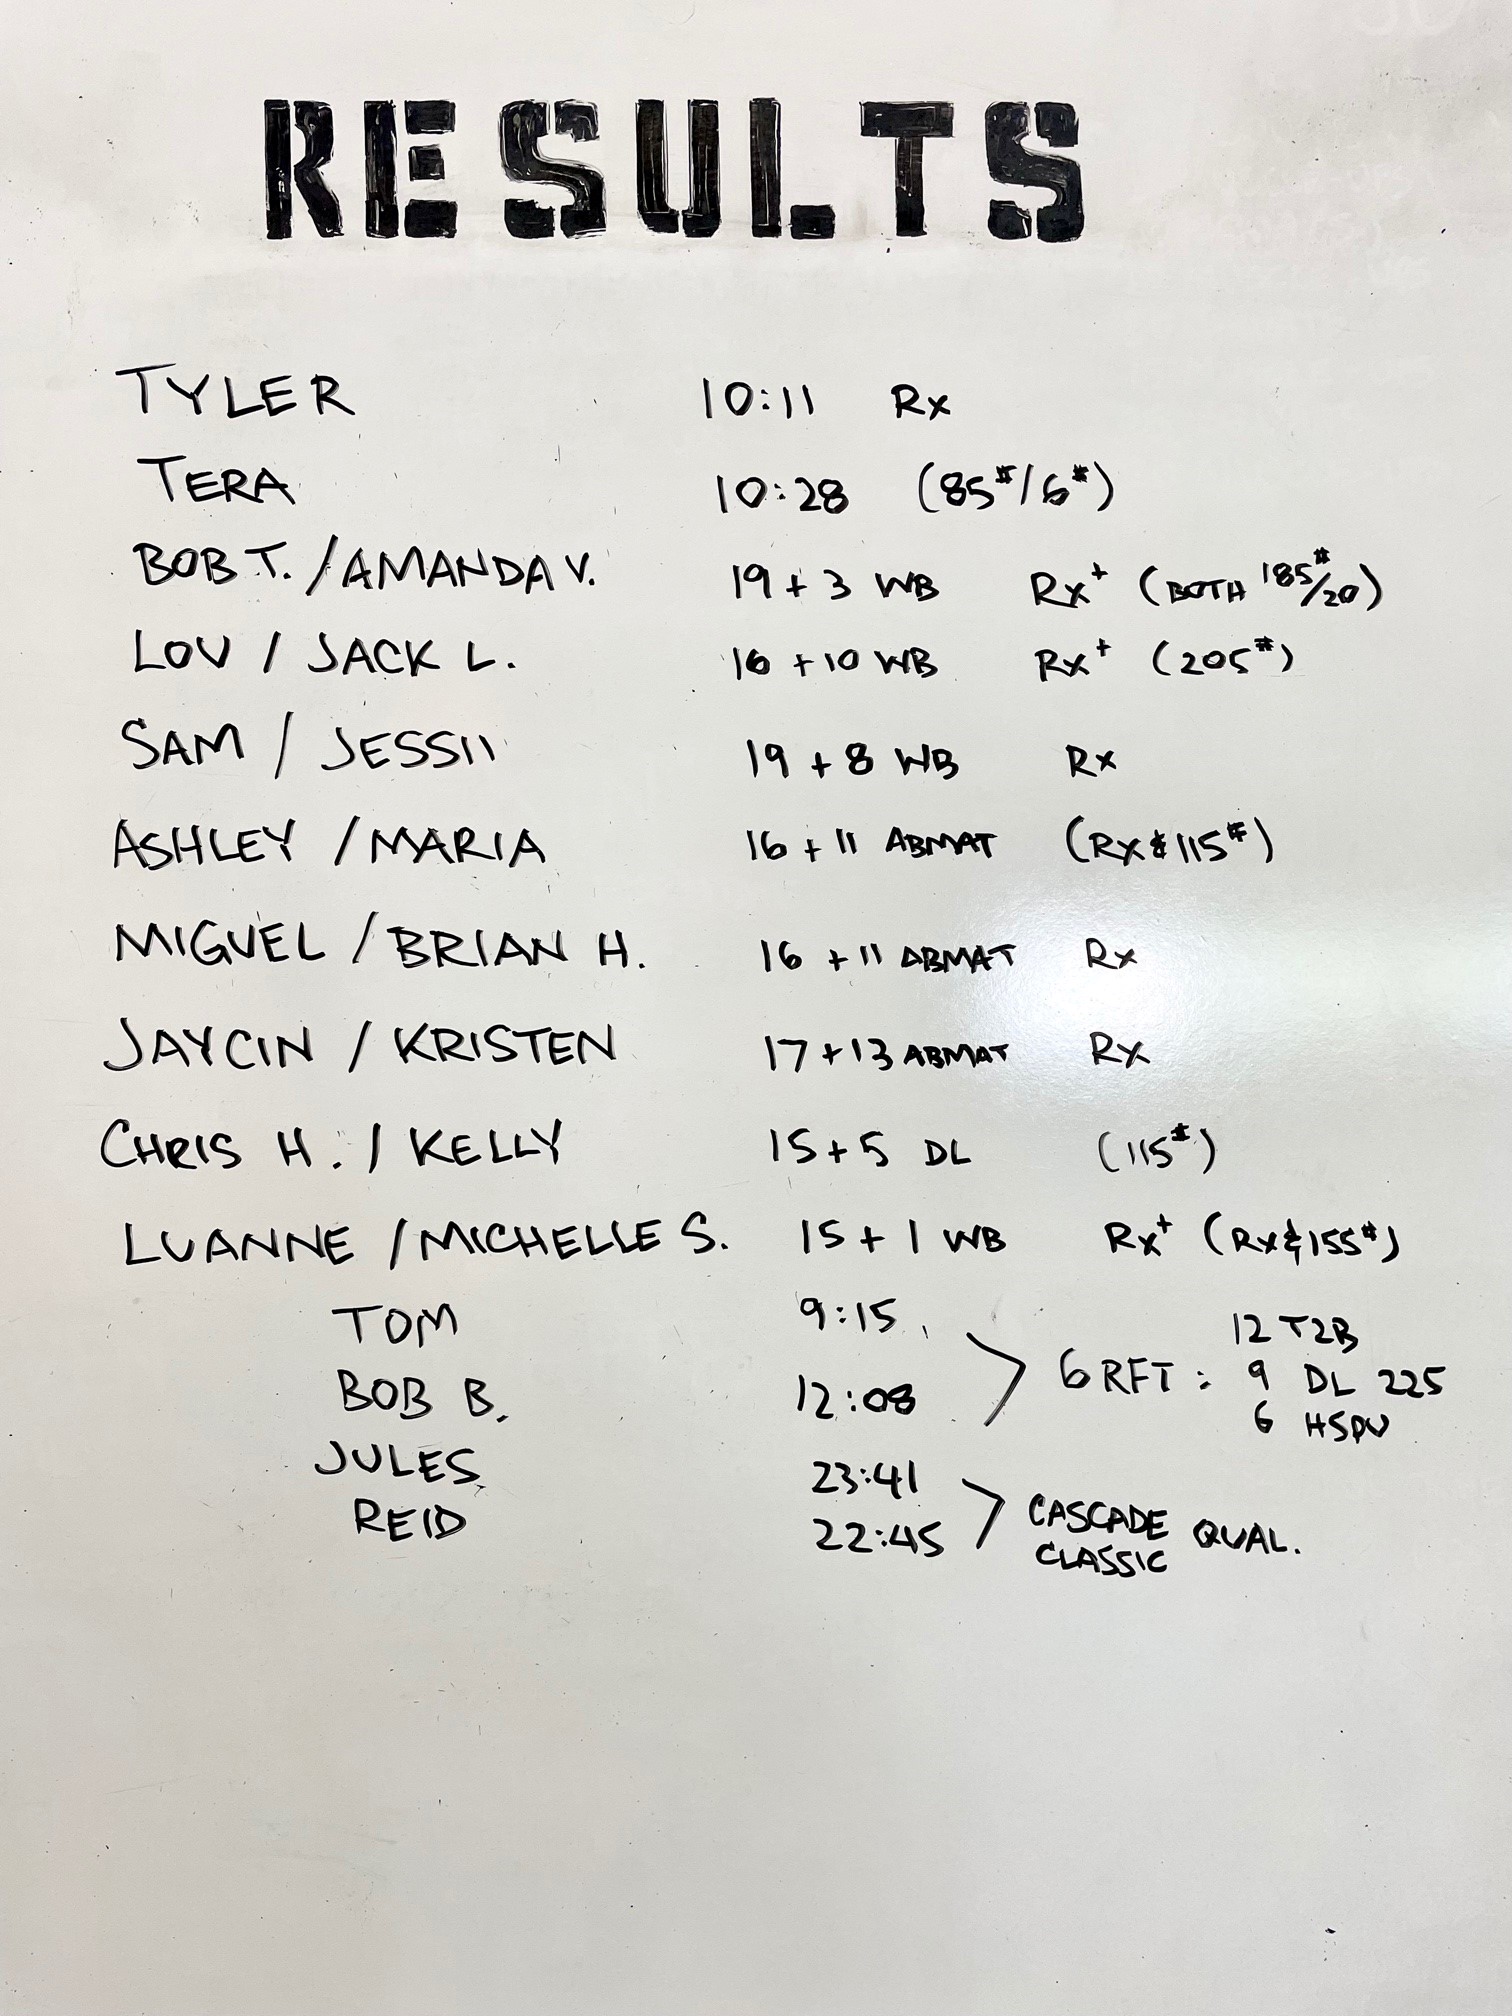 RESULTS
TYLER 10:11 Rx
TERA 10:28 (85#/6#)
BOB T. / AMANDA V. 19 + 3 WB Rx+ (BOTH 185#/20)
LOU / JACK L. 16 + 10 WB Rx+ (205#)
SAM / JESSII 19 + 8 WB Rx
ASHLEY / MARIA 16 + 11 ABMAT (Rx & 115#)
MIGUEL / BRIAN H. 16 + 11 ABMAT Rx
JAYCIN / KRISTEN 17 + 13 ABMAT Rx
CHRIS H. / KELLY 15 + 5 DL (115#)
LUANNE / MICHELLE S. 15 + 1 WB Rx+ (Rx & 155#)
TOM 9:15
BOB B. 12:08
> 6 RFT: 12 T2B
9 DL 225
6 HSPU
JULES 23:41
REID 22:45
> CASCADE CLASSIC QUAL.